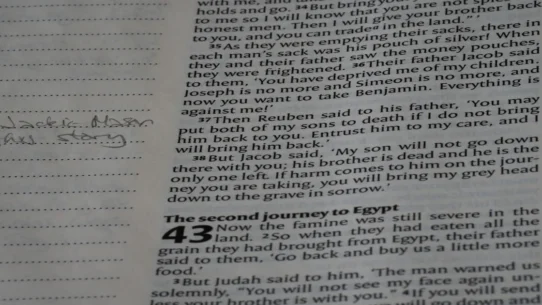 with me, and ta
holds and go. 34But bring your
to me so I will know that you are not spies
honest men. Then I will give your brother back
to you, and you can trade in the land.” ’
35As they were emptying their sacks, there in
each man's sack was his pouch of silver! When
they and their father saw the money pouches,
they were frightened. 36Their father Jacob said
to them, ‘You have deprived me of my children.
Joseph is no more and Simeon is no more, and
now you want to take Benjamin. Everything is
against me!’
37Then Reuben said to his father, ‘You may
put both of my sons to death if I do not bring
him back to you. Entrust him to my care, and I
will bring him back.’
38But Jacob said, ‘My son will not go down
there with you; his brother is dead and he is the
only one left. If harm comes to him on the jour-
ney you are taking, you will bring my grey head
down to the grave in sorrow.’
The second journey to Egypt
43 Now the famine was still severe in the
land. 2So when they had eaten all the
grain they had brought from Egypt, their father
said to them, ‘Go back and buy us a little more
food.’
3But Judah said to him, ‘The man warned us
solemnly, “You will not see my face again un-
less your brother is with you.” 4If you will send
will go down and
story